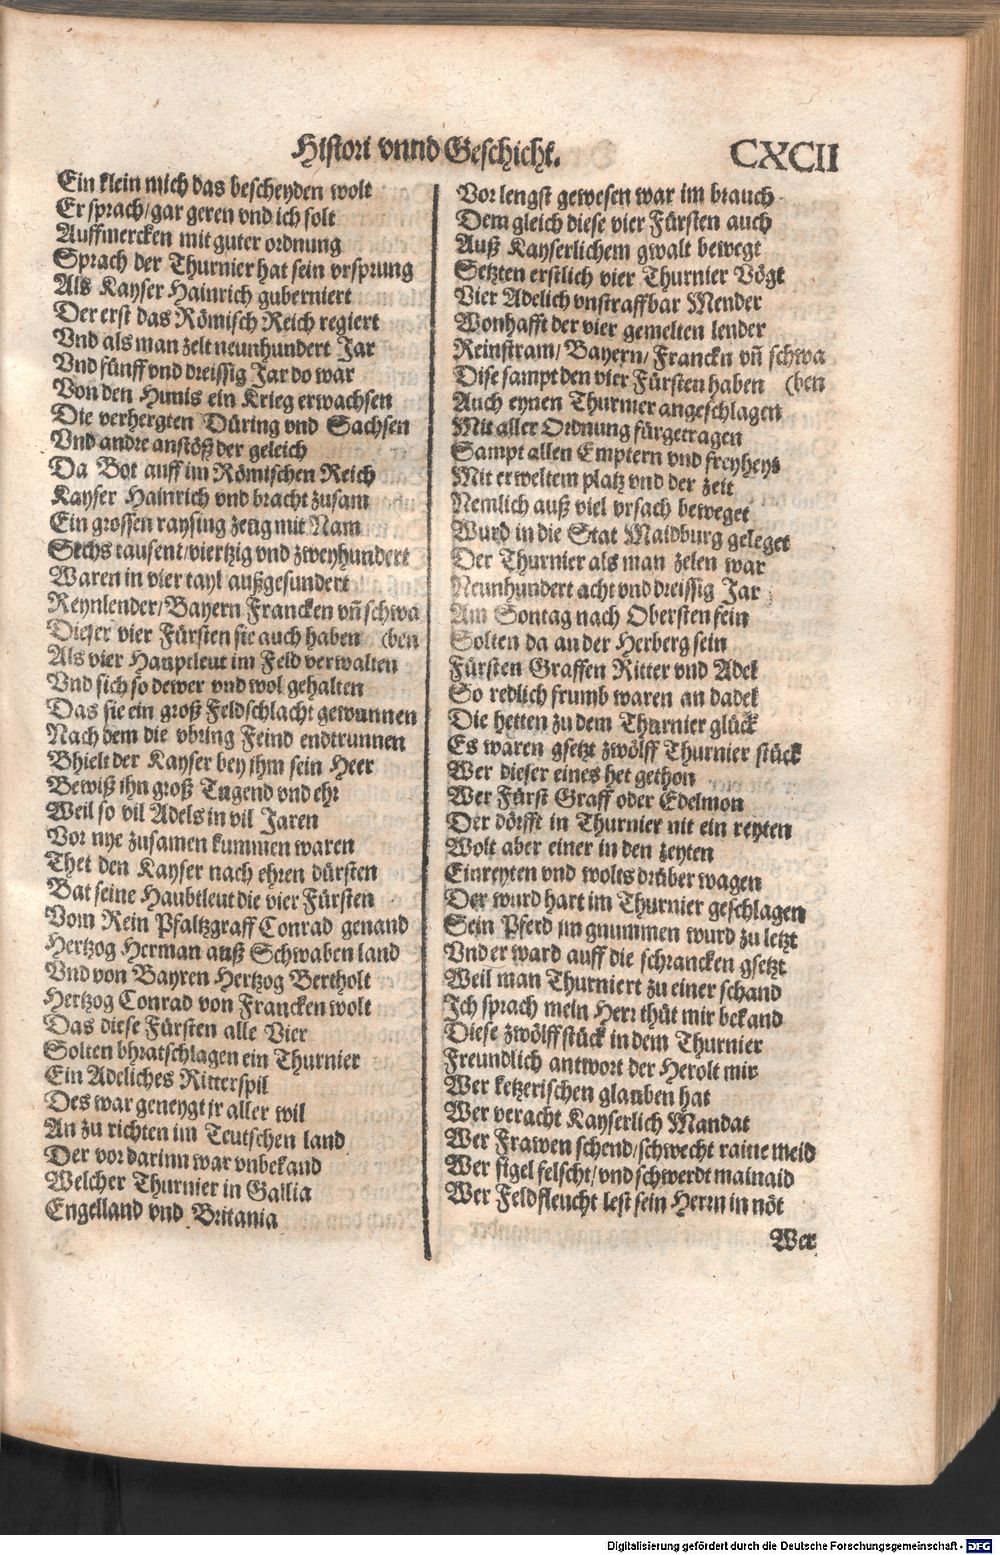 Histori vnnd Geschicht. CXCII
Ein klein mich das bescheyden wolt
Er sprach/gar geren vnd ich solt
Auffmercken mit guter ordnung
Sprach der Thurnier hat sein vrsprung
Als Kayser Hainrich guberniert
Der erst das Römisch Reich regiert
Vnd als man zelt neunhundert Jar
Vnd fünff vnd dreissig Jar do war
Von den Hunis ein Krieg erwachsen
Die verhergten Düring vnd Sachsen
Vnd andre anstöß der geleich
Da Bot auff im Römischen Reich
Kayser Hainrich vnd bracht zusam
Ein grossen raysing zeug mit Nam
Sechs tausent/viertzig vnd zweyhundert
Waren in vier tayl außgesundert
Reynlender/Bayern Francken vn̄ schwa
Dieser vier Fürsten sie auch haben (ben
Als vier Hauptleut im Feld verwalten
Vnd sich so dewer vnd wol gehalten
Das sie ein groß Feldschlacht gewunnen
Nach dem die vbring Feind endtrunnen
Bhielt der Kayser bey ihm sein Heer
Bewiß ihn groß Tugend vnd ehr
Weil so vil Adels in vil Jaren
Vor nye zusamen kummen waren
Thet den Kayser nach ehren dürsten
Bat seine Haubtleut die vier Fürsten
Vom Rein Pfaltzgraff Conrad genand
Hertzog Herman auß Schwaben land
Vnd von Bayren Hertzog Bertholt
Hertzog Conrad von Francken wolt
Das diese Fürsten alle Vier
Solten bhratschlagen ein Thurnier
Ein Adeliches Ritterspil
Des war geneygt jr aller wil
An zu richten im Teutschen land
Der vor darinn war vnbekand
Welcher Thurnier in Gallia
Engelland vnd Britania
Vor lengst gewesen war im brauch
Dem gleich diese vier Fürsten auch
Auß Kayserlichem gwalt bewegt
Setzten erstlich vier Thurnier Vögt
Vier Adelich vnstraffbar Mender
Wonhafft der vier gemelten lender
Reinstram/Bayern/Franckn vn̄ schwa
Dise sampt den vier Fürsten haben (ben
Auch eynen Thurnier angeschlagen
Mit aller Ordnung fürgetragen
Sampt allen Emptern vnd freyheys
Mit erweltem platz vnd der zeit
Nemlich auß viel vrsach beweget
Wurd in die Stat Maidburg geleget
Der Thurnier als man zelen war
Neunhundert acht vnd dreissig Jar
Am Sontag nach Obersten fein
Solten da an der Herberg sein
Fürsten Graffen Ritter vnd Adel
So redlich frumb waren an dadel
Die hetten zu dem Thurnier glück
Es waren gsetzt zwölff Thurnier stück
Wer dieser eines het gethon
Wer Fürst Graff oder Edelmon
Der dörfft in Thurnier nit ein reyten
Wolt aber einer in den zeyten
Einreyten vnd wolts drüber wagen
Der wurd hart im Thurnier geschlagen
Sein Pferd jm gnummen wurd zu letzt
Vnd er ward auff die schrancken gsetzt
Weil man Thurniert zu einer schand
Ich sprach mein Herr thüt mir bekand
Diese zwölff stück in dem Thurnier
Freundlich antwort der Herolt mir
Wer ketzerischen glauben hat
Wer veracht Kayserlich Mandat
Wer Frawen schend/schwecht raine meid
Wer sigel felscht/vnd schwerdt mainaid
Wer Feldfleucht lest sein Herrn in nöt
Wer
Digitalisierung gefördert durch die Deutsche Forschungsgemeinschaft - DFG